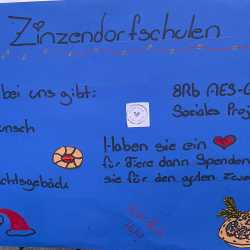 Zinzendorfschulen
bei uns gibt:
8Rb AES-G
Soziales Proj
unsch
Haben sie ein
für Tiere dann Spenden
chtsgebäck
sie für den guten Zwe